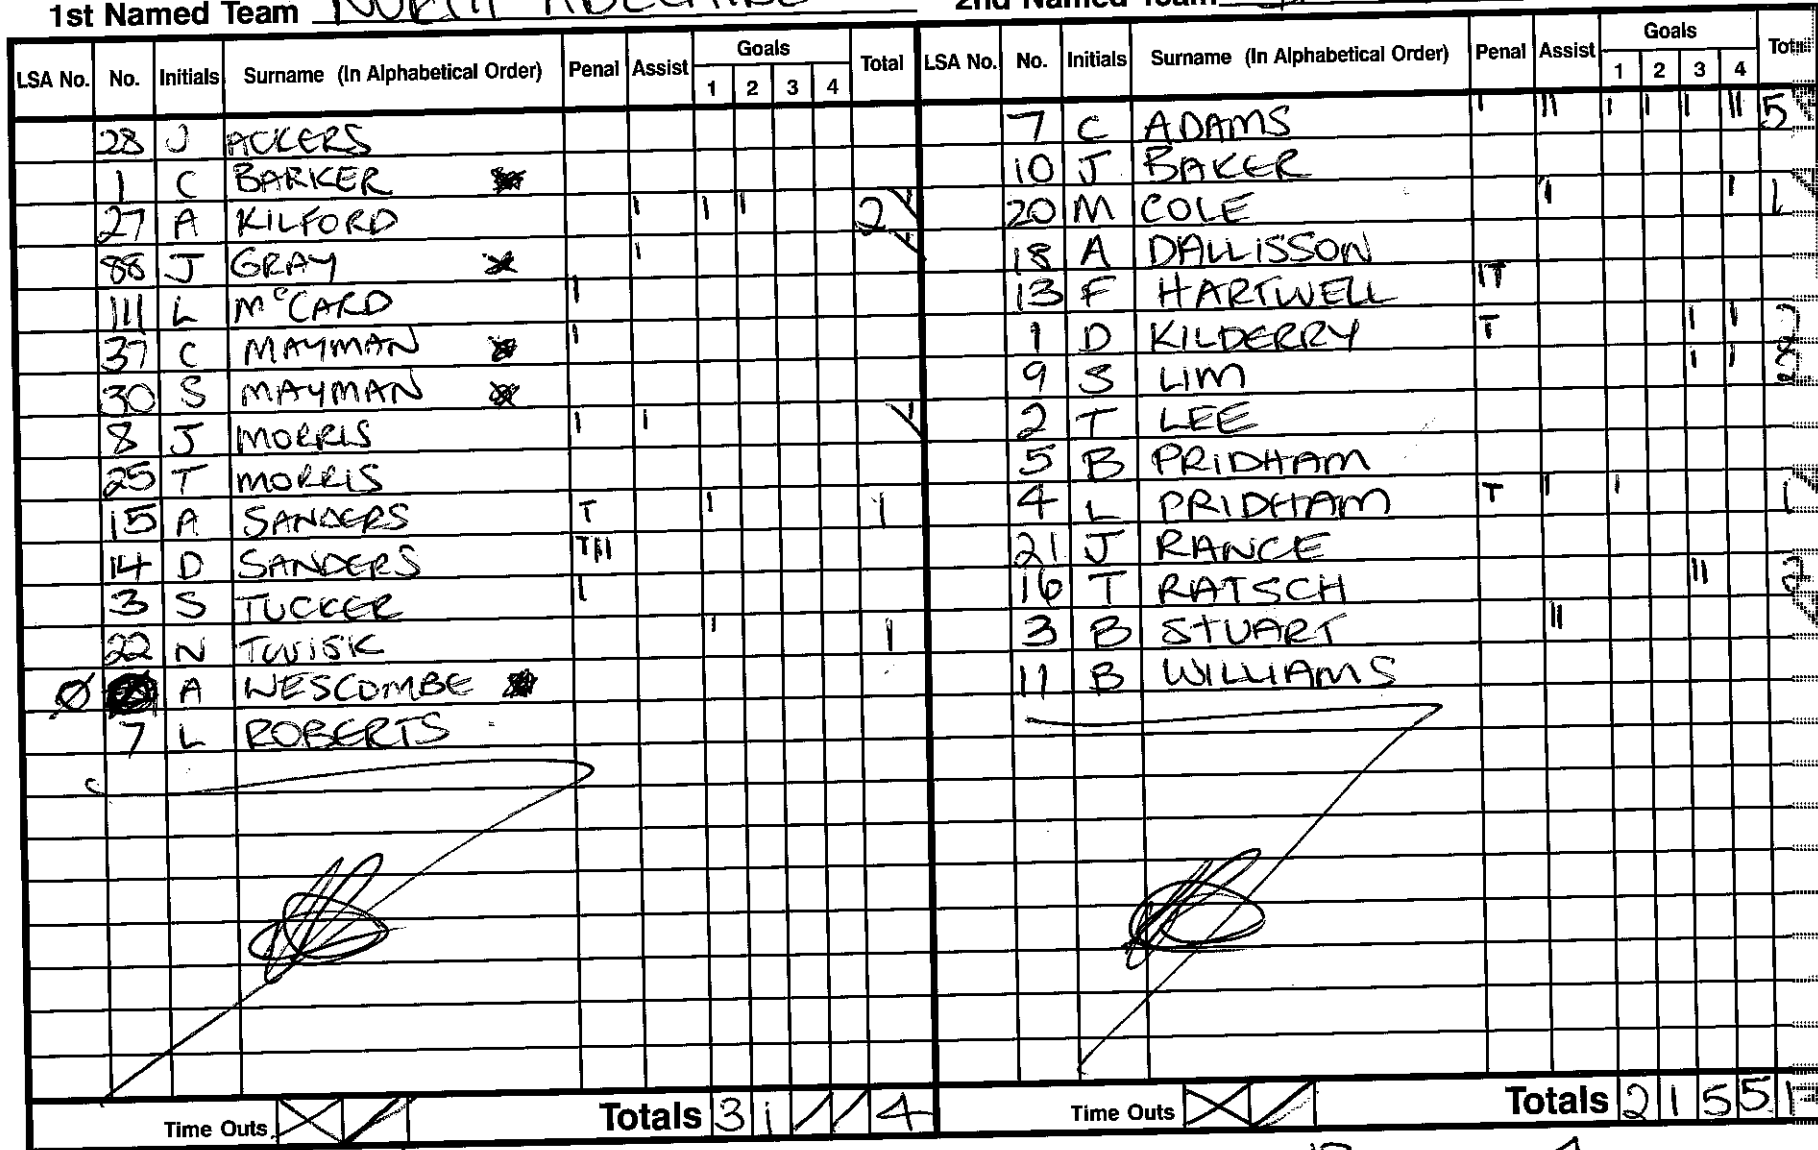 1st Named Team NORTH ADELAIDE 2nd Named Team
LSA No. No. Initials Surname (In Alphabetical Order) Penal Assist Goals 1 2 3 4 Total
28 J ACKERS
1 C BARKER
27 A KILFORD I I I 2
88 J GRAY I
111 L McCARD I
37 C MAYMAN I
30 S MAYMAN
8 J MORRIS I I
25 T MORRIS
15 A SANDERS T I 1
14 D SANDERS TII
3 S TUCKER I
22 N TWISK I 1
Ø A WESCOMBE
7 L ROBERTS
Time Outs Totals 3 1 / / 4
LSA No. No. Initials Surname (In Alphabetical Order) Penal Assist Goals 1 2 3 4
7 C ADAMS I II I I I II 5
10 J BAKER
20 M COLE I I 1
18 A DALLISSON
13 F HARTWELL IT
1 D KILDERRY T I I 2
9 S LIM I I 2
2 T LEE
5 B PRIDHAM
4 L PRIDHAM T I I 1
21 J RANCE
16 T RATSCH II 2
3 B STUART II
11 B WILLIAMS
Time Outs Totals 2 1 5 5